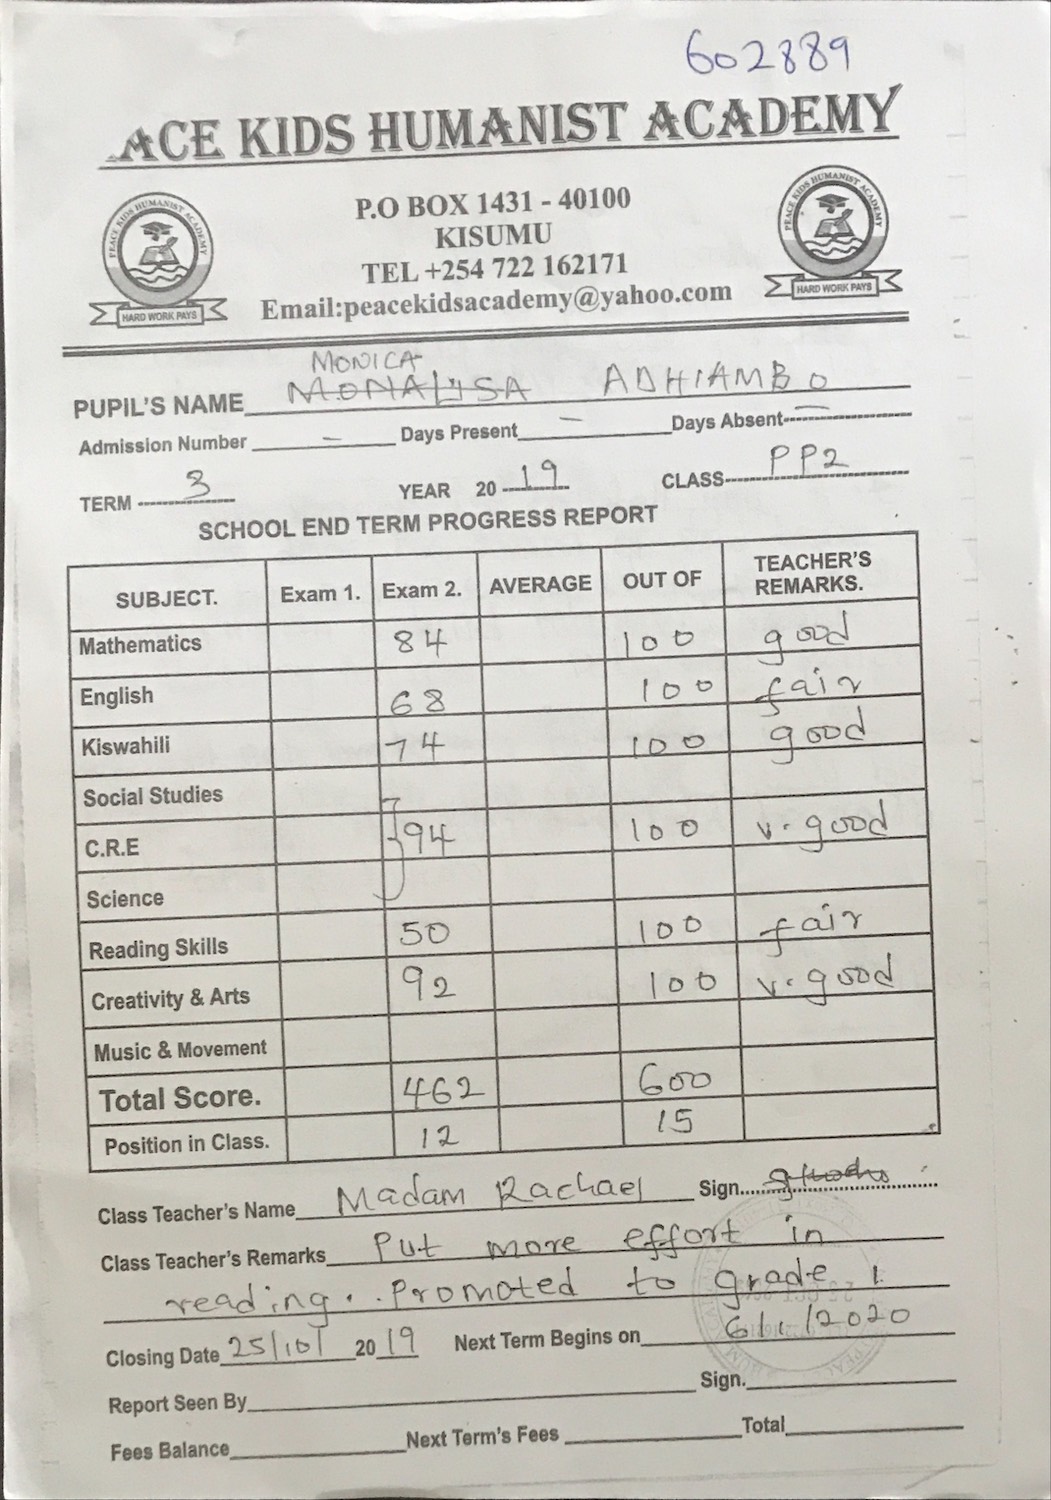 602889
ACE KIDS HUMANIST ACADEMY
PEACE KIDS HUMANIST ACADEMY
HARD WORK PAYS
P.O BOX 1431 - 40100
KISUMU
TEL +254 722 162171
Email:peacekidsacademy@yahoo.com
PEACE KIDS HUMANIST ACADEMY
HARD WORK PAYS
MONICA
PUPIL'S NAME MONALISA ADHIAMBO
Admission Number – Days Present – Days Absent –
TERM 3 YEAR 20 19 CLASS PP2
SCHOOL END TERM PROGRESS REPORT
SUBJECT. Exam 1. Exam 2. AVERAGE OUT OF TEACHER'S REMARKS.
Mathematics 84 100 good
English 68 100 fair
Kiswahili 74 100 good
Social Studies
C.R.E 94 100 v. good
Science
Reading Skills 50 100 fair
Creativity & Arts 92 100 v. good
Music & Movement
Total Score. 462 600
Position in Class. 12 15
Class Teacher's Name Madam Rachael Sign.
Class Teacher's Remarks Put more effort in
reading. . Promoted to grade 1.
Closing Date 25/10/ 20 19 Next Term Begins on 6/1/2020
Report Seen By Sign.
Fees Balance Next Term's Fees Total